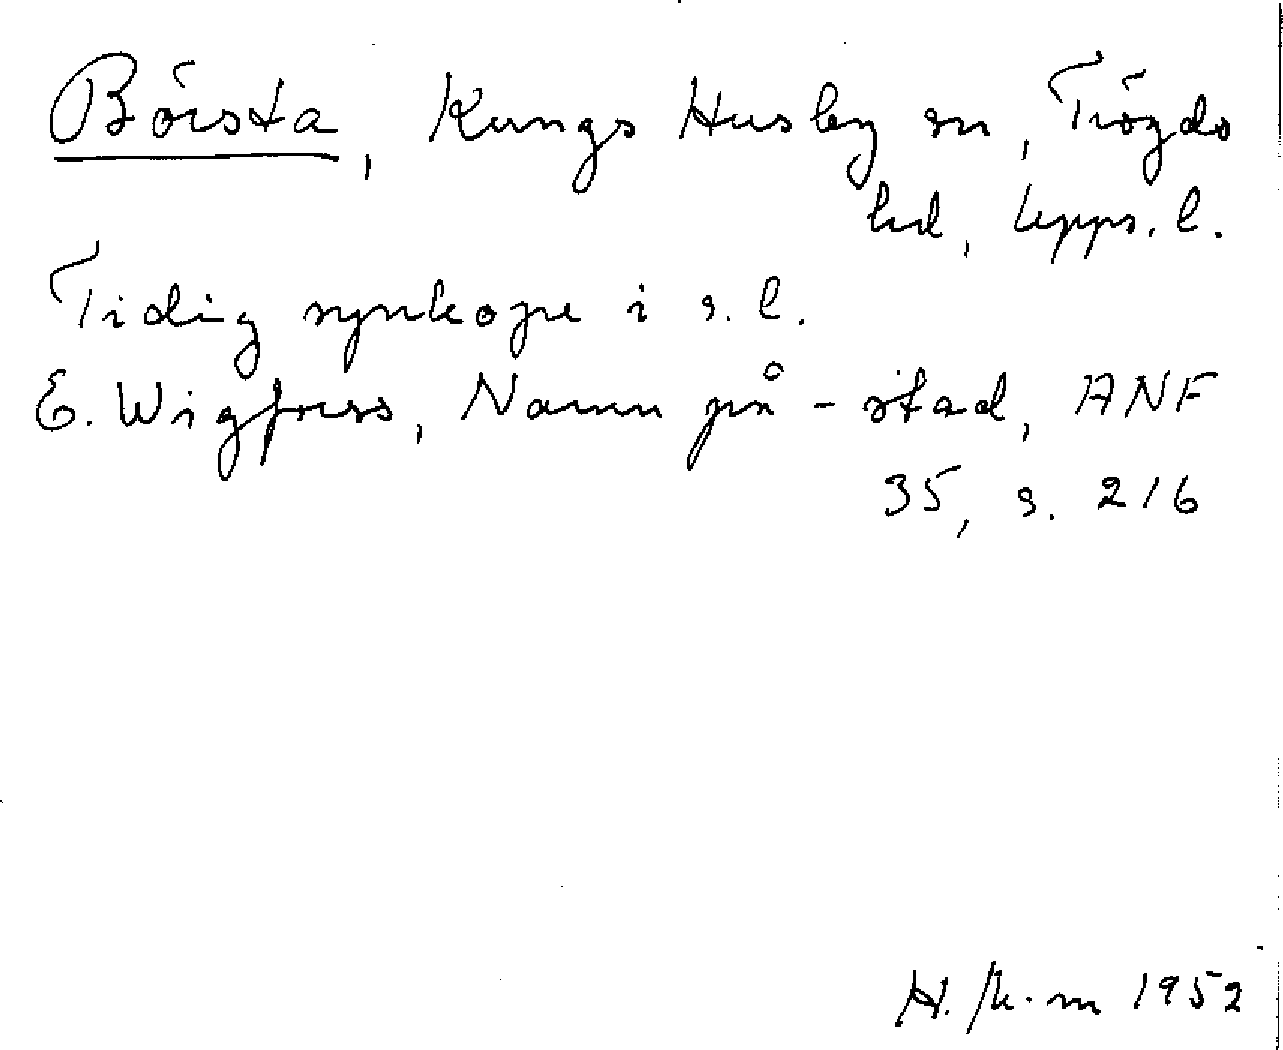 Börsta, Kungs Husby sn, Trögds
hd, Upps. l.
Tidig synkope i s. l.
E. Wigforss, Namn på -stad, ANF
35, s. 216
H. 1952